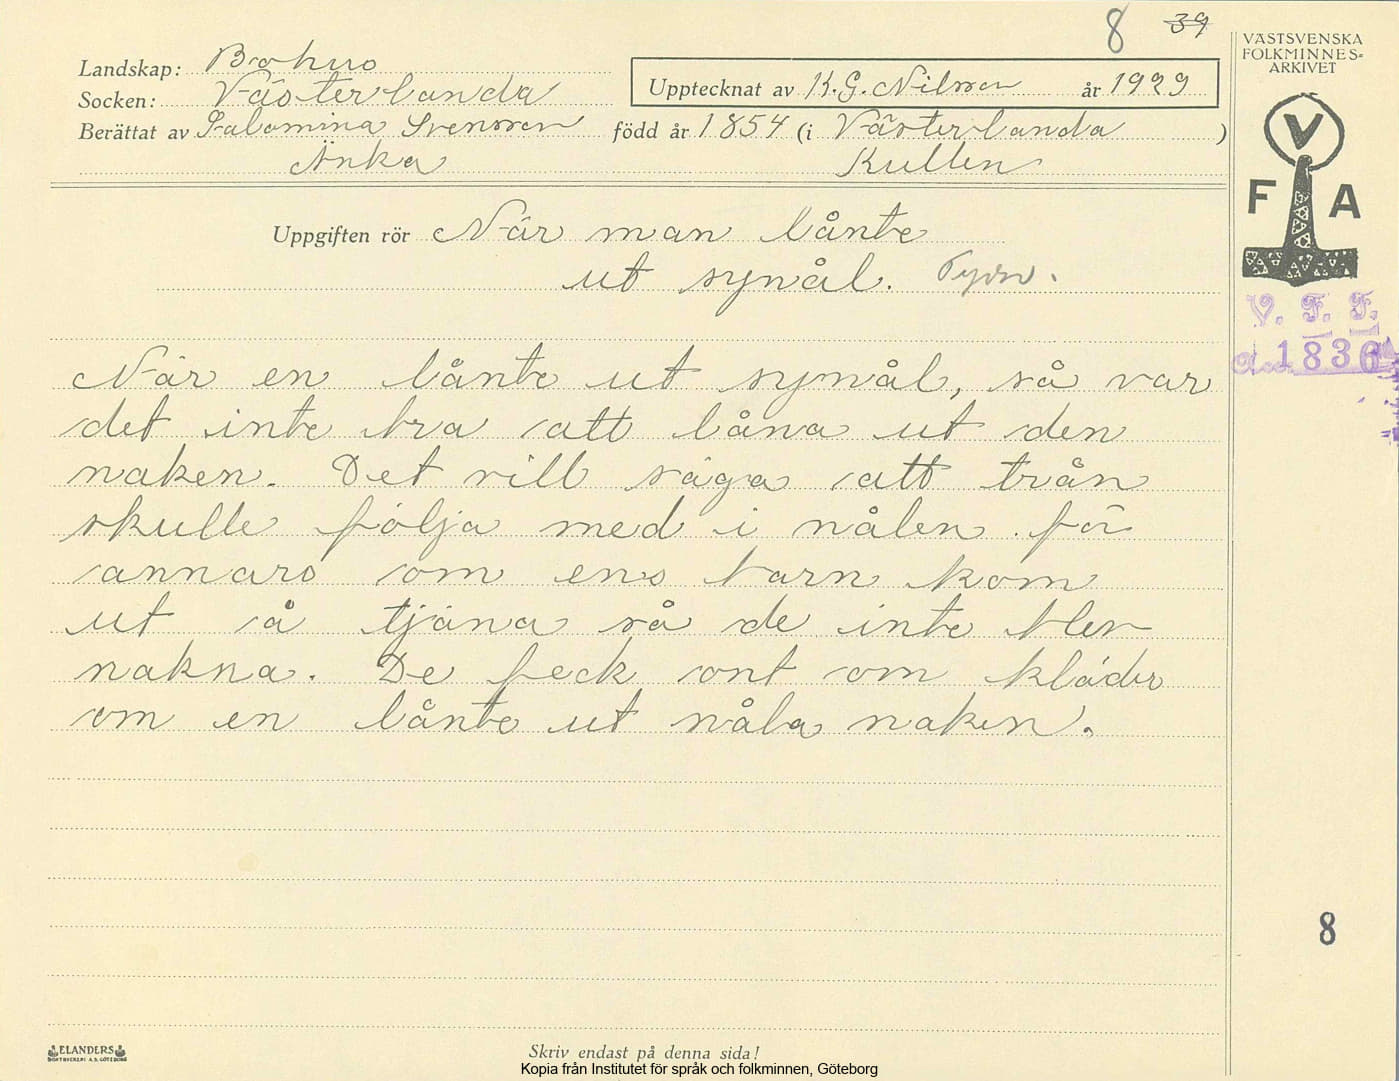 8 39
VÄSTSVENSKA
FOLKMINNES=
ARKIVET
Landskap: Bohus
Socken: Västerlanda
Upptecknat av K.G. Nilsson år 1929
Berättat av Salomina Svensson född år 1854 (i Västerlanda )
Änka Kullen
V
F A
Uppgiften rör När man lånte
ut synål.
V. F. F.
1836
När en lånte ut synål, så var
det inte bra att låna ut den
naken. Det vill säga att trån
skulle följa med i nålen för
annars om ens barn kom
ut å tjäna så de inte blev
nakna. De feck ont om kläder
om en lånte ut nåla naken.
8
ELANDERS
BOKTRYCKERI A.B. GÖTEBORG
Skriv endast på denna sida!
Kopia från Institutet för språk och folkminnen, Göteborg